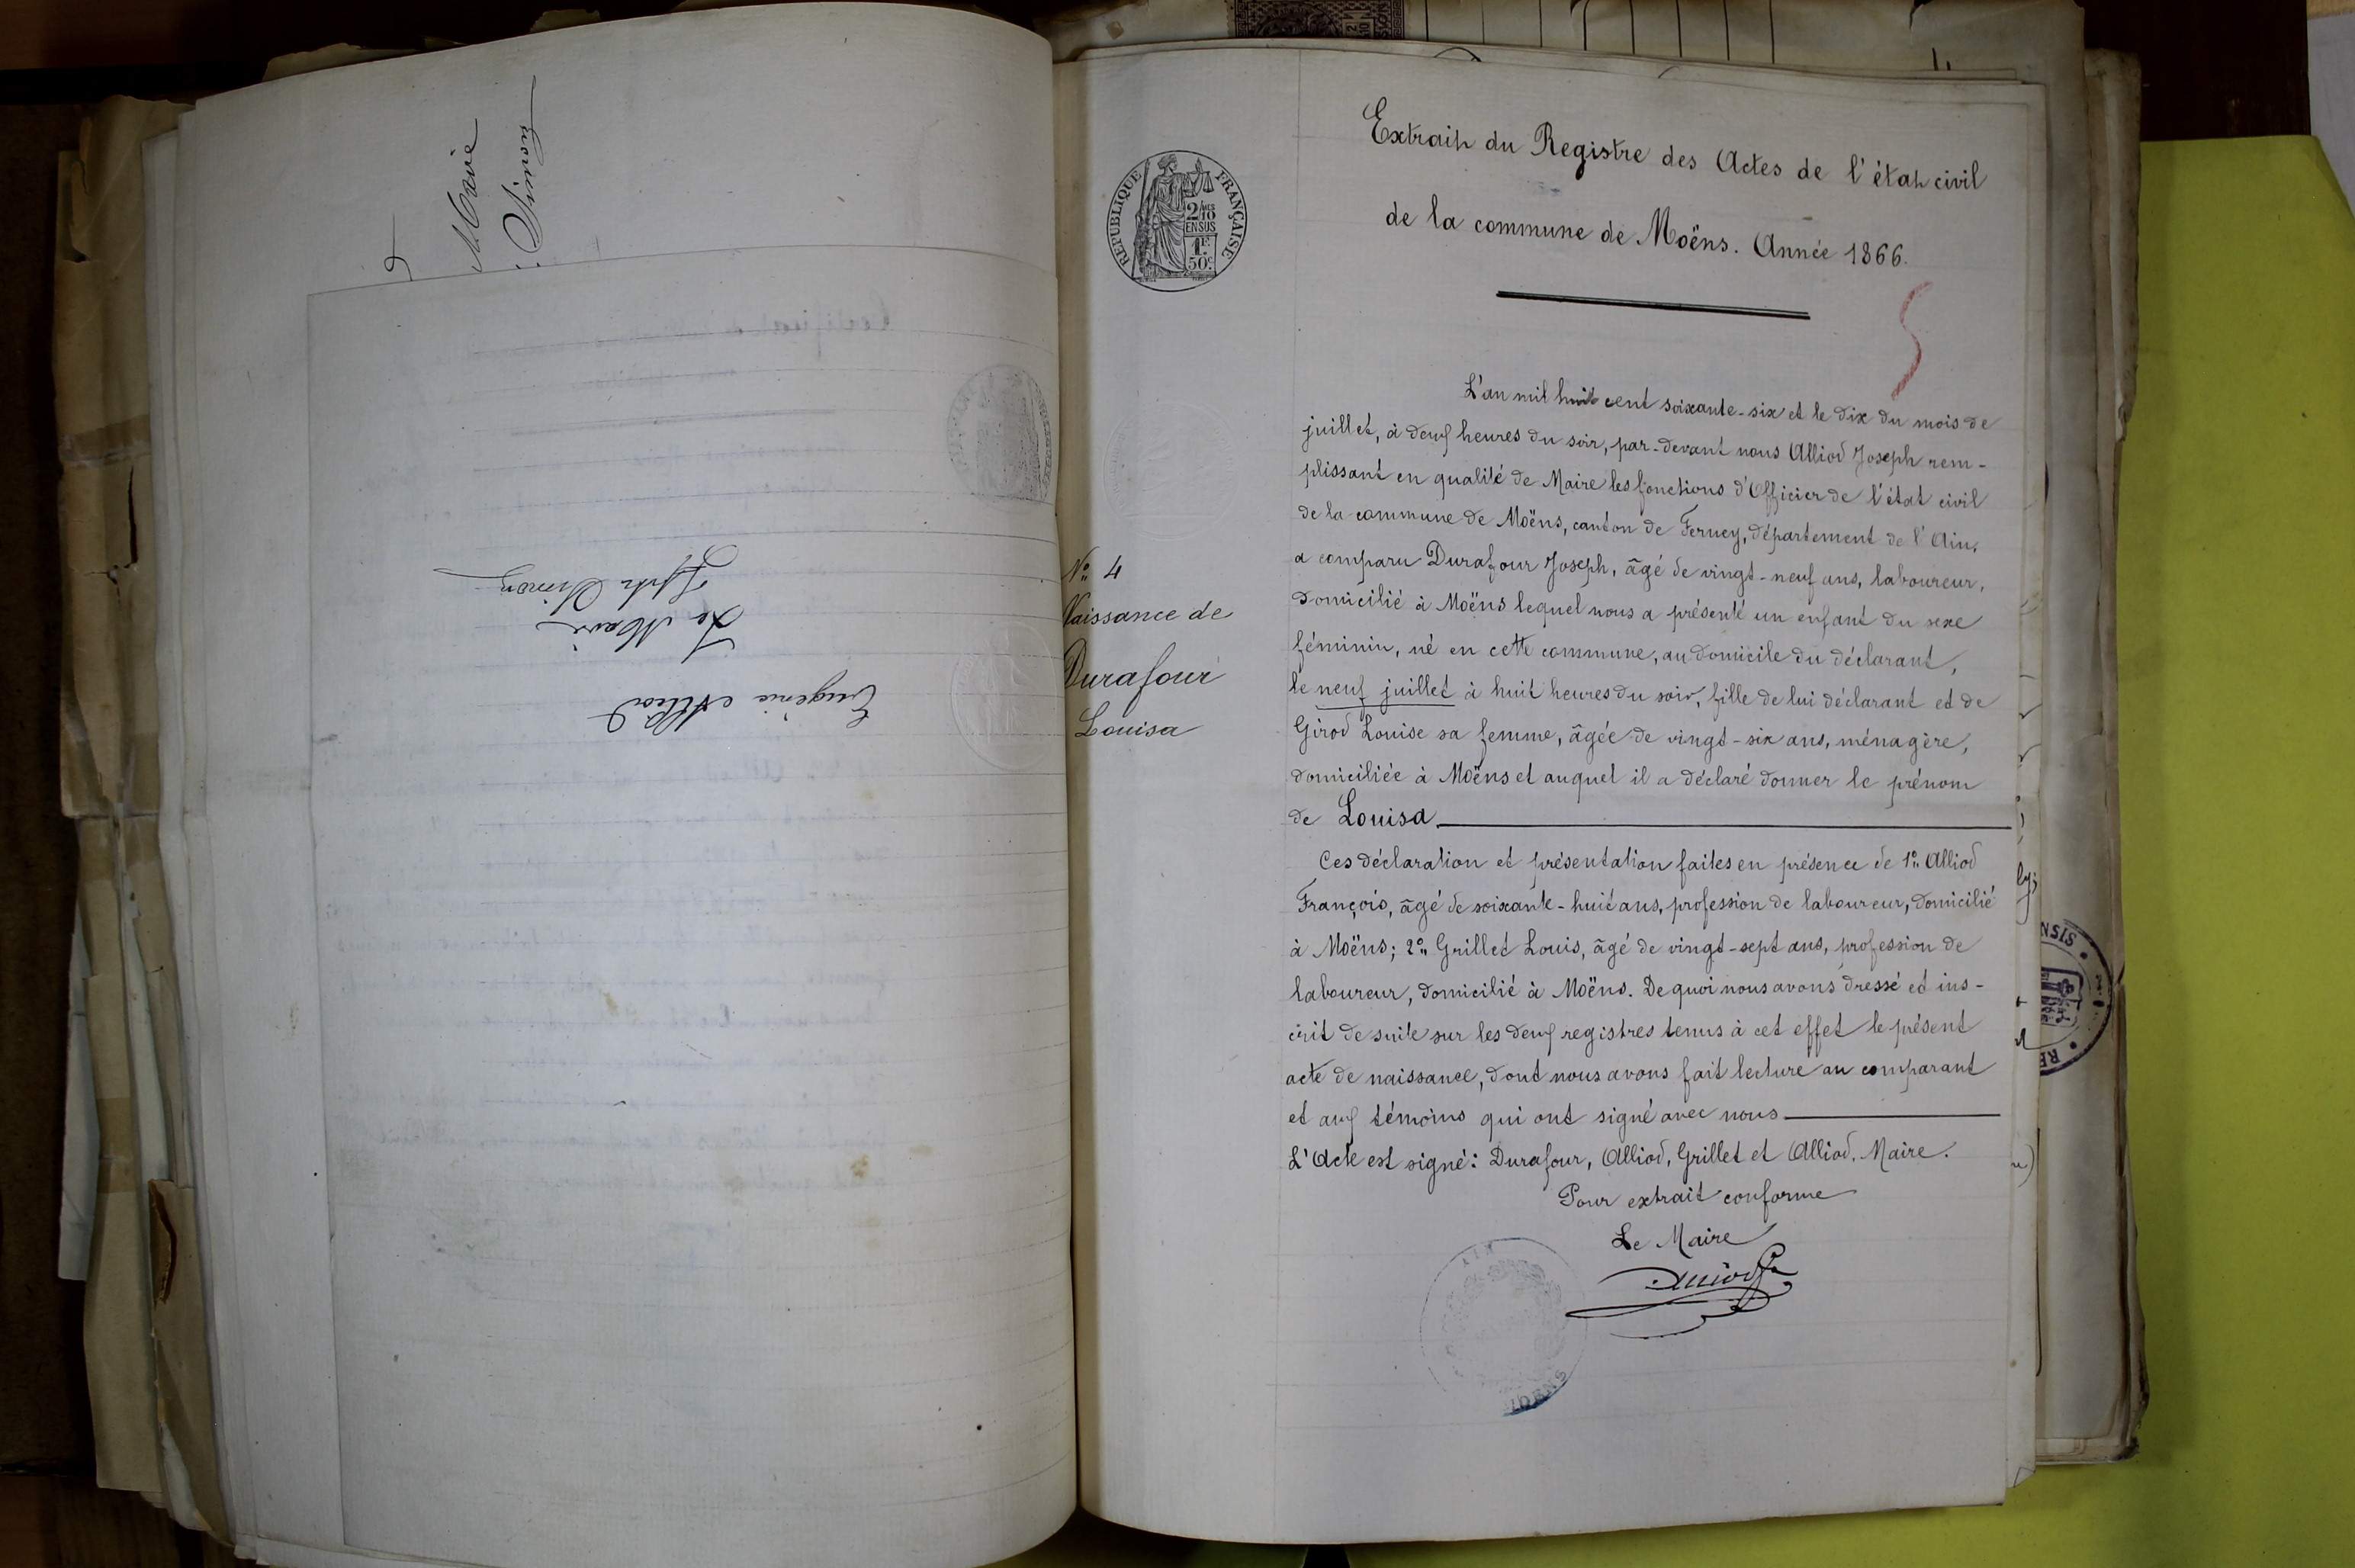 Maire
Simon
Eugénie Alliod
Le Maire
Simon
RÉPUBLIQUE FRANÇAISE
2/10
EN SUS
1F.
50c.
Extrait du Registre des Actes de l'état civil
de la commune de Moëns. Année 1866.
5
N° 4
Naissance de
Durafour
Louisa
L'an mil huit cent soixante-six et le dix du mois de
juillet, à deux heures du soir, par-devant nous Alliod Joseph rem-
plissant en qualité de Maire les fonctions d'Officier de l'état civil
de la commune de Moëns, canton de Ferney, département de l'Ain,
a comparu Durafour Joseph, âgé de vingt-neuf ans, laboureur,
domicilié à Moëns lequel nous a présenté un enfant du sexe
féminin, né en cette commune, au domicile du déclarant,
le neuf juillet à huit heures du soir, fille de lui déclarant et de
Girod Louise sa femme, âgée de vingt-six ans, ménagère,
domiciliée à Moëns et auquel il a déclaré donner le prénom
de Louisa
Ces déclaration et présentation faites en présence de 1° Alliod
François, âgé de soixante-huit ans, profession de laboureur, domicilié
à Moëns; 2° Grillet Louis, âgé de vingt-sept ans, profession de
laboureur, domicilié à Moëns. De quoi nous avons dressé et ins-
crit de suite sur les deux registres tenus à cet effet le présent
acte de naissance, dont nous avons fait lecture au comparant
et aux témoins qui ont signé avec nous
L'Acte est signé: Durafour, Alliod, Grillet et Alliod, Maire.
Pour extrait conforme
Le Maire
AIN
MOENS
NSIS